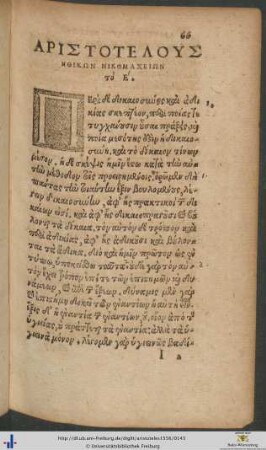 66
ΑΡΙΣΤΟΤΕΛΟΥΣ
ΗΘΙΚΩΝ ΝΙΚΟΜΑΧΕΙΩΝ
τὸ Ε.
Περὶ δὲ δικαιοσύνης καὶ ἀδι
κίας σκεπτέον, ποίας τε
τυγχάνουσιν οὖσαι πράξεις, καὶ
ποία μεσότης ἐστὶν ἡ δικαιο
σύνη, καὶ τὸ δίκαιον τίνων
μέσον. ἡ δὲ σκέψις ἡμῖν ἔστω κατὰ τὴν αὐ
τὴν μέθοδον τοῖς προειρημένοις. ὁρῶμεν δὴ
πάντας τὴν τοιαύτην ἕξιν βουλομένους λέ
γειν δικαιοσύνην, ἀφ' ἧς πρακτικοὶ τῶν δι
καίων εἰσὶ, καὶ ἀφ' ἧς δικαιοπραγοῦσι καὶ βού
λονται τὰ δίκαια. τὸν αὐτὸν δὲ τρόπον καὶ
περὶ ἀδικίας, ἀφ' ἧς ἀδικοῦσι καὶ βούλον
ται τὰ ἄδικα. διὸ καὶ ἡμῖν πρῶτον ὡς ἐν
τύπῳ ὑποκείσθω ταῦτα. οὐδὲ γὰρ τὸν αὐ
τὸν ἔχει τρόπον ἐπί τε τῶν ἐπιστημῶν καὶ δυνά
μεων, καὶ ἐπὶ τῶν ἕξεων. δύναμις μὲν γὰρ
καὶ ἐπιστήμη δοκεῖ τῶν ἐναντίων ἡ αὐτὴ εἶναι.
ἕξις δ' ἡ ἐναντία τῶν ἐναντίων οὔ, οἷον ἀπὸ τῆς
ὑγιείας, οὐ πράττεται τὰ ἐναντία, ἀλλὰ τὰ ὑ
γιεινὰ μόνον. λέγομεν γὰρ ὑγιεινῶς βαδί
I a
http://dl.ub.uni-freiburg.de/diglit/aristoteles1556/0143
© Universitätsbibliothek Freiburg
Baden-Württemberg